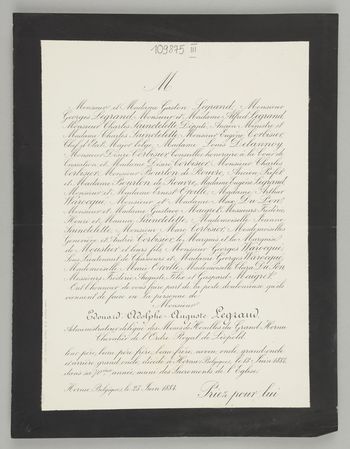 109875 III
M
Monsieur et Madame Gaston Legrand, Monsieur
Georges Legrand, Monsieur et Madame Alfred Legrand,
Monsieur Charles Sainctelette, Député, Ancien Ministre et
Madame Charles Sainctelette, Monsieur Eugène Corbisier
Chef d'Etat Major belge, Madame Louis Delannoy,
Monsieur Désiré Corbisier Conseiller honoraire à la Cour de
Cassation et Madame Désiré Corbisier, Monsieur Charles
Corbisier, Monsieur Ancien Préfet
et Madame Madame Eugène Legrand,
Monsieur et Madame Ernest Madame Arthur
Warocqué, Monsieur et Madame Max
Monsieur et Madame Gustave Messieurs Frédéric,
Henri et Maurice Sainctelette, Mademoiselle Jeanne
Sainctelette, Monsieur Marc Corbisier, Mesdemoiselles
Geneviève et Corbisier, le Marquis et la Marquise
de et leurs fils, Monsieur Georges Warocqué,
Sous Lieutenant de Chasseurs et Madame Georges Warocqué,
Mademoiselle Marie Mademoiselle
Messieurs Frédéric, Auguste, Félix et Gaspard
Ont l'honneur de vous faire part de la perte douloureuse qu'ils
viennent de faire en la personne de
Monsieur
Edouard-Adolphe-Auguste Legrand
Administrateur délégué des Mines de Houilles du Grand Hornu
Chevalier de l'Ordre Royal de Léopold
leur père, beau père, frère, beau frère, neveu, oncle, grand oncle
et arrière grand oncle, décédé à Hornu (Belgique), le Juin 1884,
dans sa année, muni des Sacrements de l'Eglise.
Hornu (Belgique), le 25 Juin 1884.
Priez pour lui